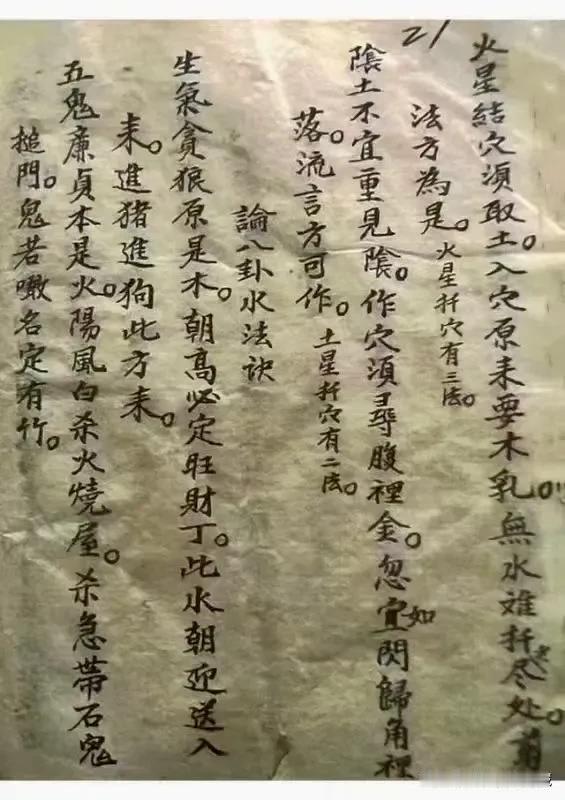 21
火星結穴湏取土。入穴原耒要木乳。無水难扦尽处。剪
法方為是。火星扦穴有三法。
陰土不宜重見陰。作穴湏尋腹裡金。忽如宜閃歸角裡
落。流言方可作。土星扦穴有二法。
論八卦水法訣
生氣貪狼原是木。朝高必定旺財丁。此水朝迎送入
耒。進猪進狗此方耒。
五鬼廉貞本是火。陽風白杀火燒屋。杀急帶石鬼
搥門。鬼若噉名定有竹。